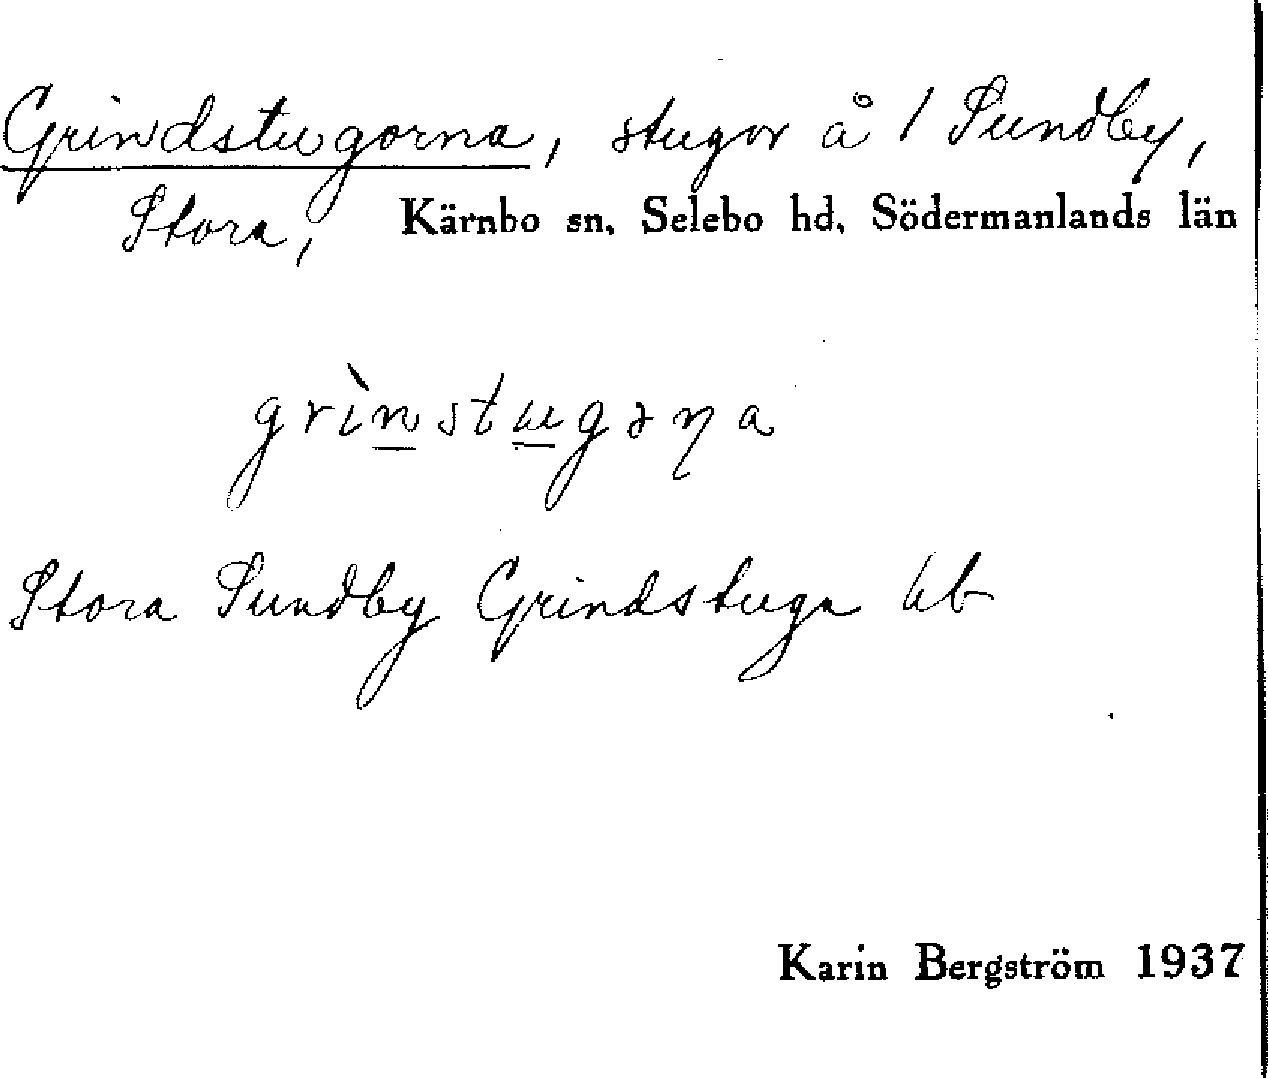 Grindstugorna, stugor å 1 Sundby,
Stora, Kärnbo sn, Selebo hd, Södermanlands län
grìn̲stu̲gɘɳa
Stora Sundby Grindstuga kb
Karin Bergström 1937